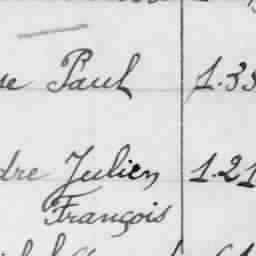 se Paul 1.33
dre Julien 1.21
François